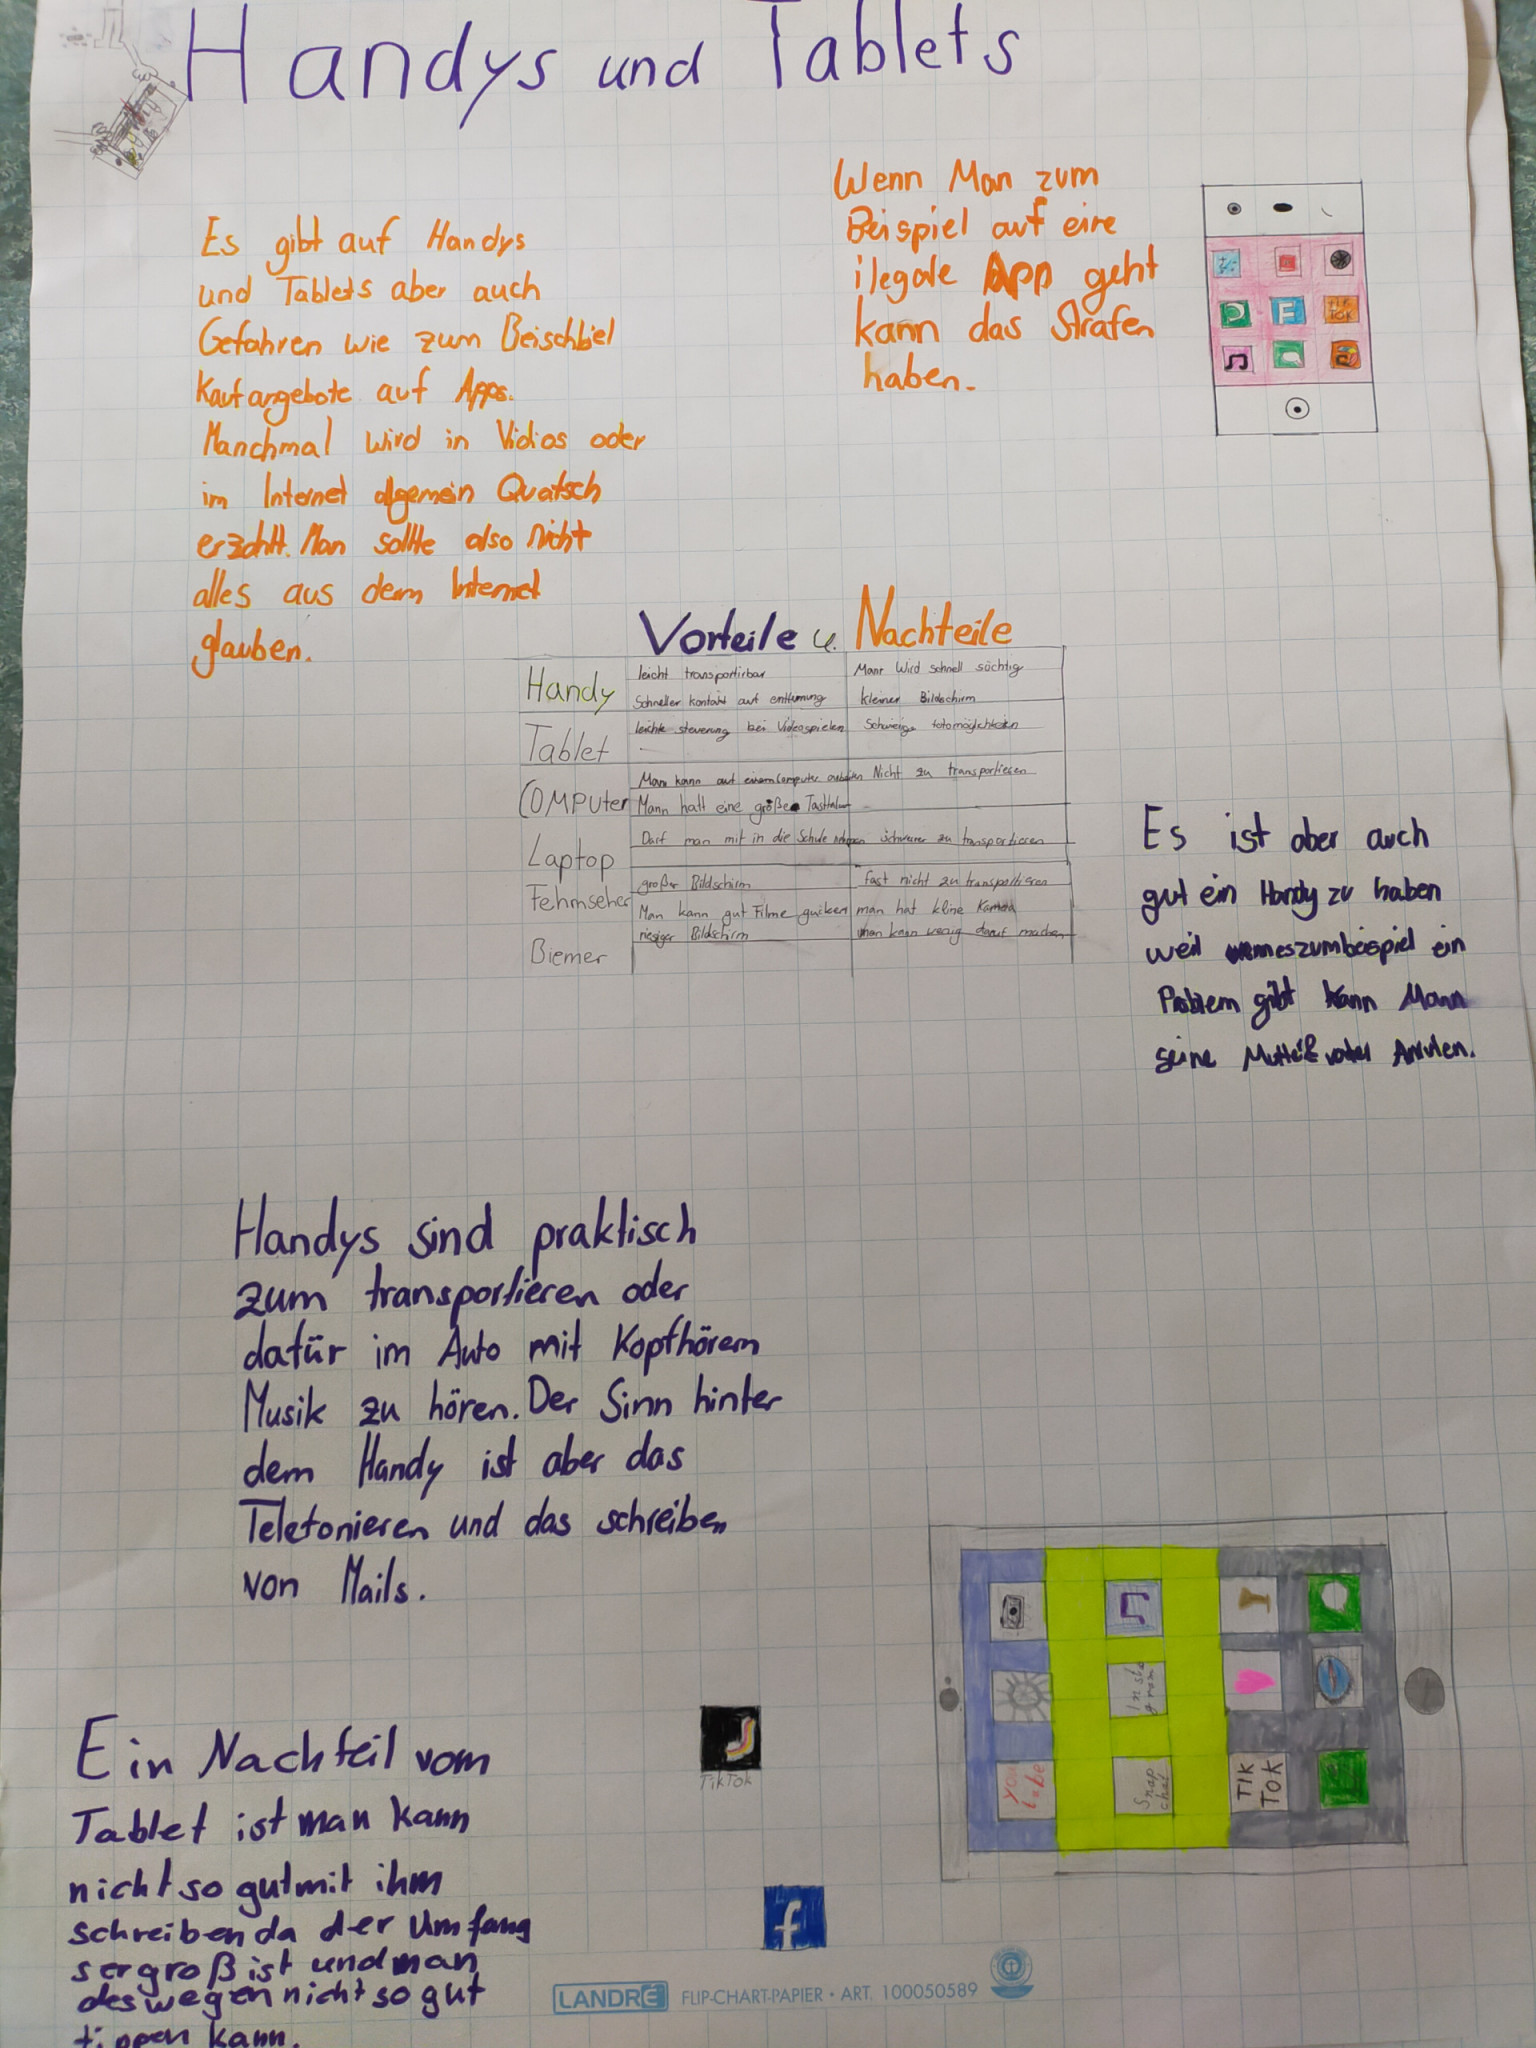 Handys und Tablets
Es gibt auf Handys
und Tablets aber auch
Gefahren wie zum Beischbiel
Kaufangebote auf Apps.
Manchmal wird in Vidios oder
im Internet algemein Quatsch
erzahlt. Man sollte also nicht
alles aus dem Internet
glauben.
Wenn Man zum
Beispiel auf eine
ilegale App geht
kann das Strafen
haben.
F
TIK TOK
Vorteile u. Nachteile
Handy
leicht transportirbar
Mann wird schnell süchtig
Schneller kontakt auf entfernung
kleiner Bildschirm
Tablet
leichte steuerung bei Videospielen
Schwierige fotomöglichkeiten
COMPUter
Mann kann auf einem Computer arbeiten
Nicht zu transportieren
Mann hatt eine große
Laptop
Darf man mit in die Schule nehmen
schwerer zu transportieren
Fehrnseher
großer Bildschirm
fast nicht zu transportieren
Biemer
Man kann gut Filme gucken
man hat kline Kamera
riesiger Bildschirm
man kann wenig darauf machen
Es ist aber auch
gut ein Handy zu haben
weil zumbeispiel ein
Problem gibt kann Mann
seine Anrufen.
Handys sind praktisch
zum transportieren oder
dafür im Auto mit Kopfhörern
Musik zu hören. Der Sinn hinter
dem Handy ist aber das
Telefonieren und das schreiben
von Mails.
Ein Nachteil vom
Tablet ist man kann
nicht so gut mit ihm
schreiben da der Umfang
ser groß ist und man
deswegen nicht so gut
tippen kann.
TikTok
f
Insta
gram
You
tube
Snap
chat
TIK
TOK
LANDRÉ FLIP-CHART-PAPIER • ART. 100050589